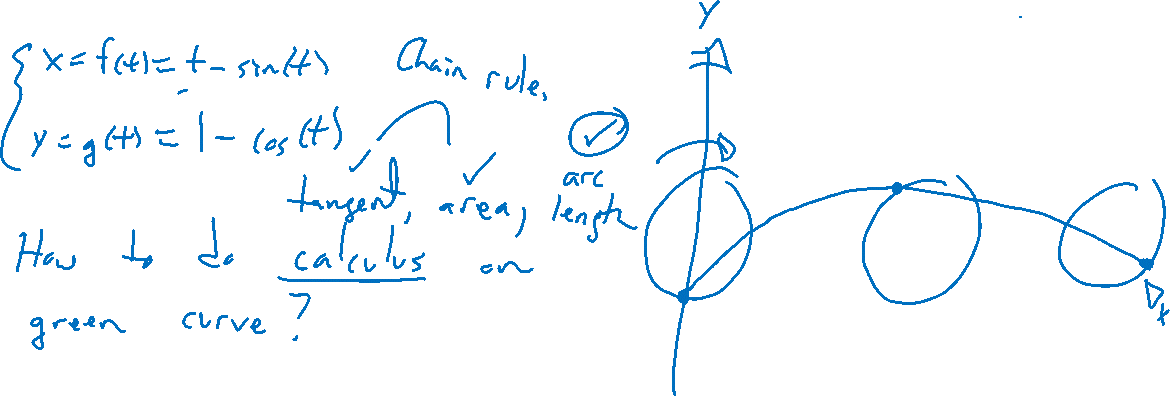 x = f(t) = t - sin(t)
y = g(t) = 1 - cos(t)
Chain rule,
tangent, area, arc length
How to do calculus on
green curve?
y
x